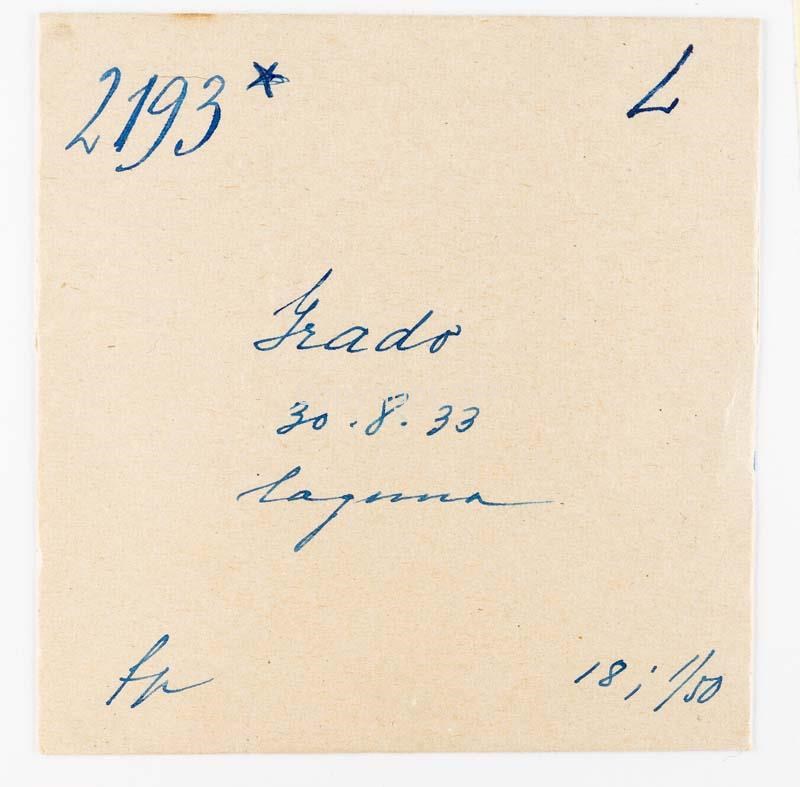 2193* L
Grado
30.8.33
laguna
fp 18; 1/50